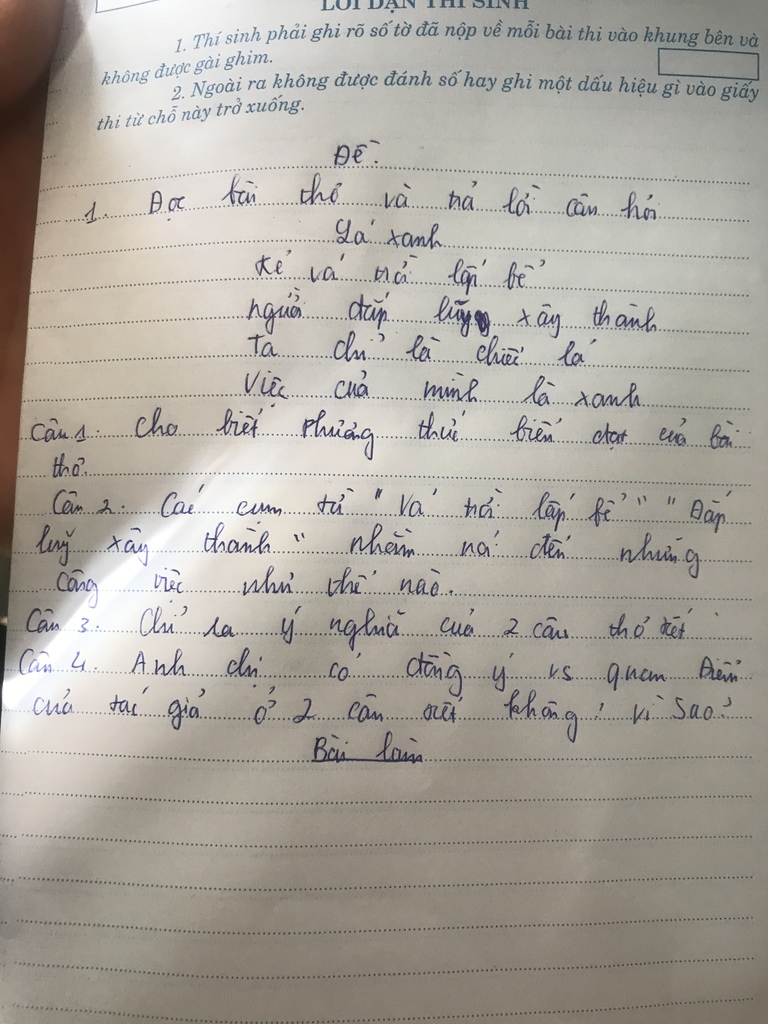 LỜI DẶN THÍ SINH
1. Thí sinh phải ghi rõ số tờ đã nộp về mỗi bài thi vào khung bên và
không được gài ghim.
2. Ngoài ra không được đánh số hay ghi một dấu hiệu gì vào giấy
thi từ chỗ này trở xuống.
Đề:
1. Đọc bài thơ và trả lời câu hỏi
Lá xanh
Kẻ vá trời lấp bể
người đắp lũy xây thành
Ta chỉ là chiếc lá
Việc của mình là xanh
Câu 1. Cho biết Phương thức biến đạt của bài
thơ.
Câu 2. Các cụm từ "Vá trời lấp bể" "Đắp
luỹ xây thành" nhằm nói đến những
công việc như thế nào.
Câu 3. Chỉ ra ý nghĩa của 2 câu thơ kết
Câu 4. Anh chị có đồng ý vs quan Điểm
của tác giả ở 2 câu kết không? Vì sao?
Bài làm